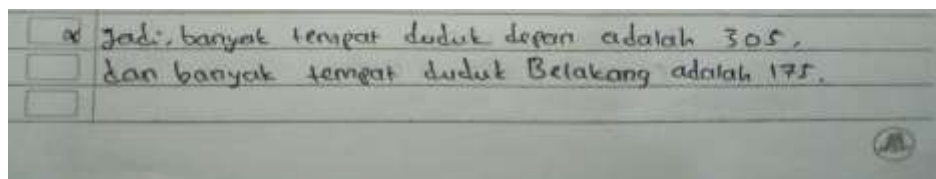 Jadi, banyak tempat duduk depan adalah 305,
dan banyak tempat duduk Belakang adalah 175.